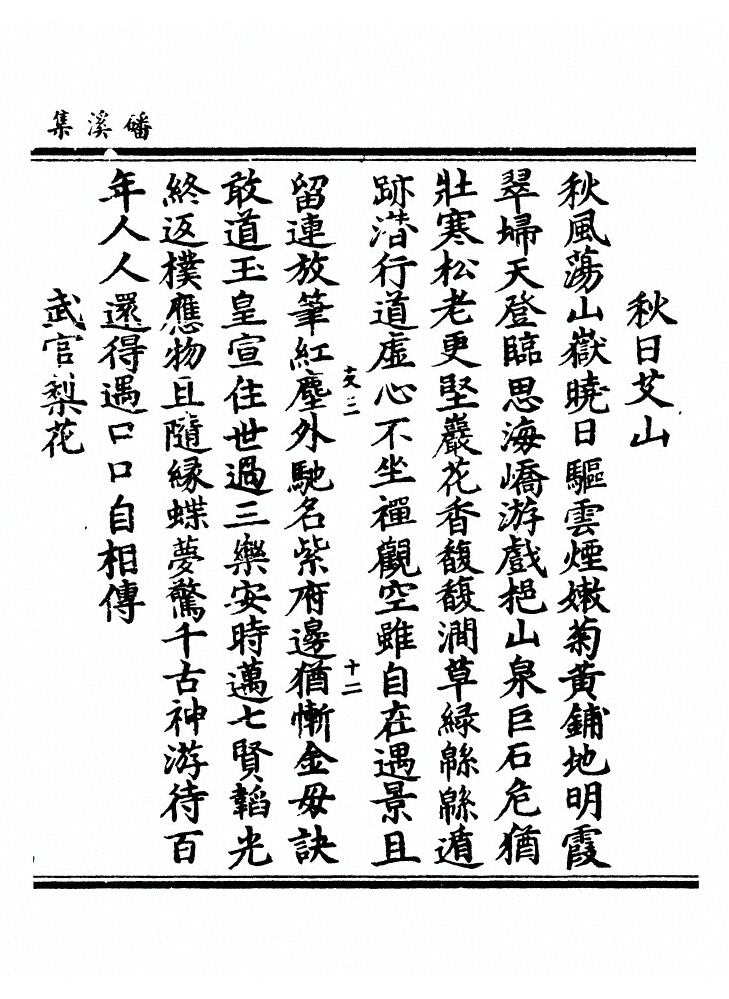 磻溪集
秋日艾山
秋風蕩山嶽曉日驅雲煙嫩菊黃鋪地明霞
翠埽天登臨思海嶠游戲挹山泉巨石危猶
壯寒松老更堅巖花香馥馥澗草綠緜緜遁
跡潛行道虛心不坐禪觀空雖自在遇景且
攵三 十二
留連放筆紅塵外馳名紫府邊猶慚金母訣
敢道玉皇宣住世過三樂安時邁七賢韜光
終返樸應物且隨緣蝶夢驚千古神游待百
年人人還得遇口口自相傳
武官梨花